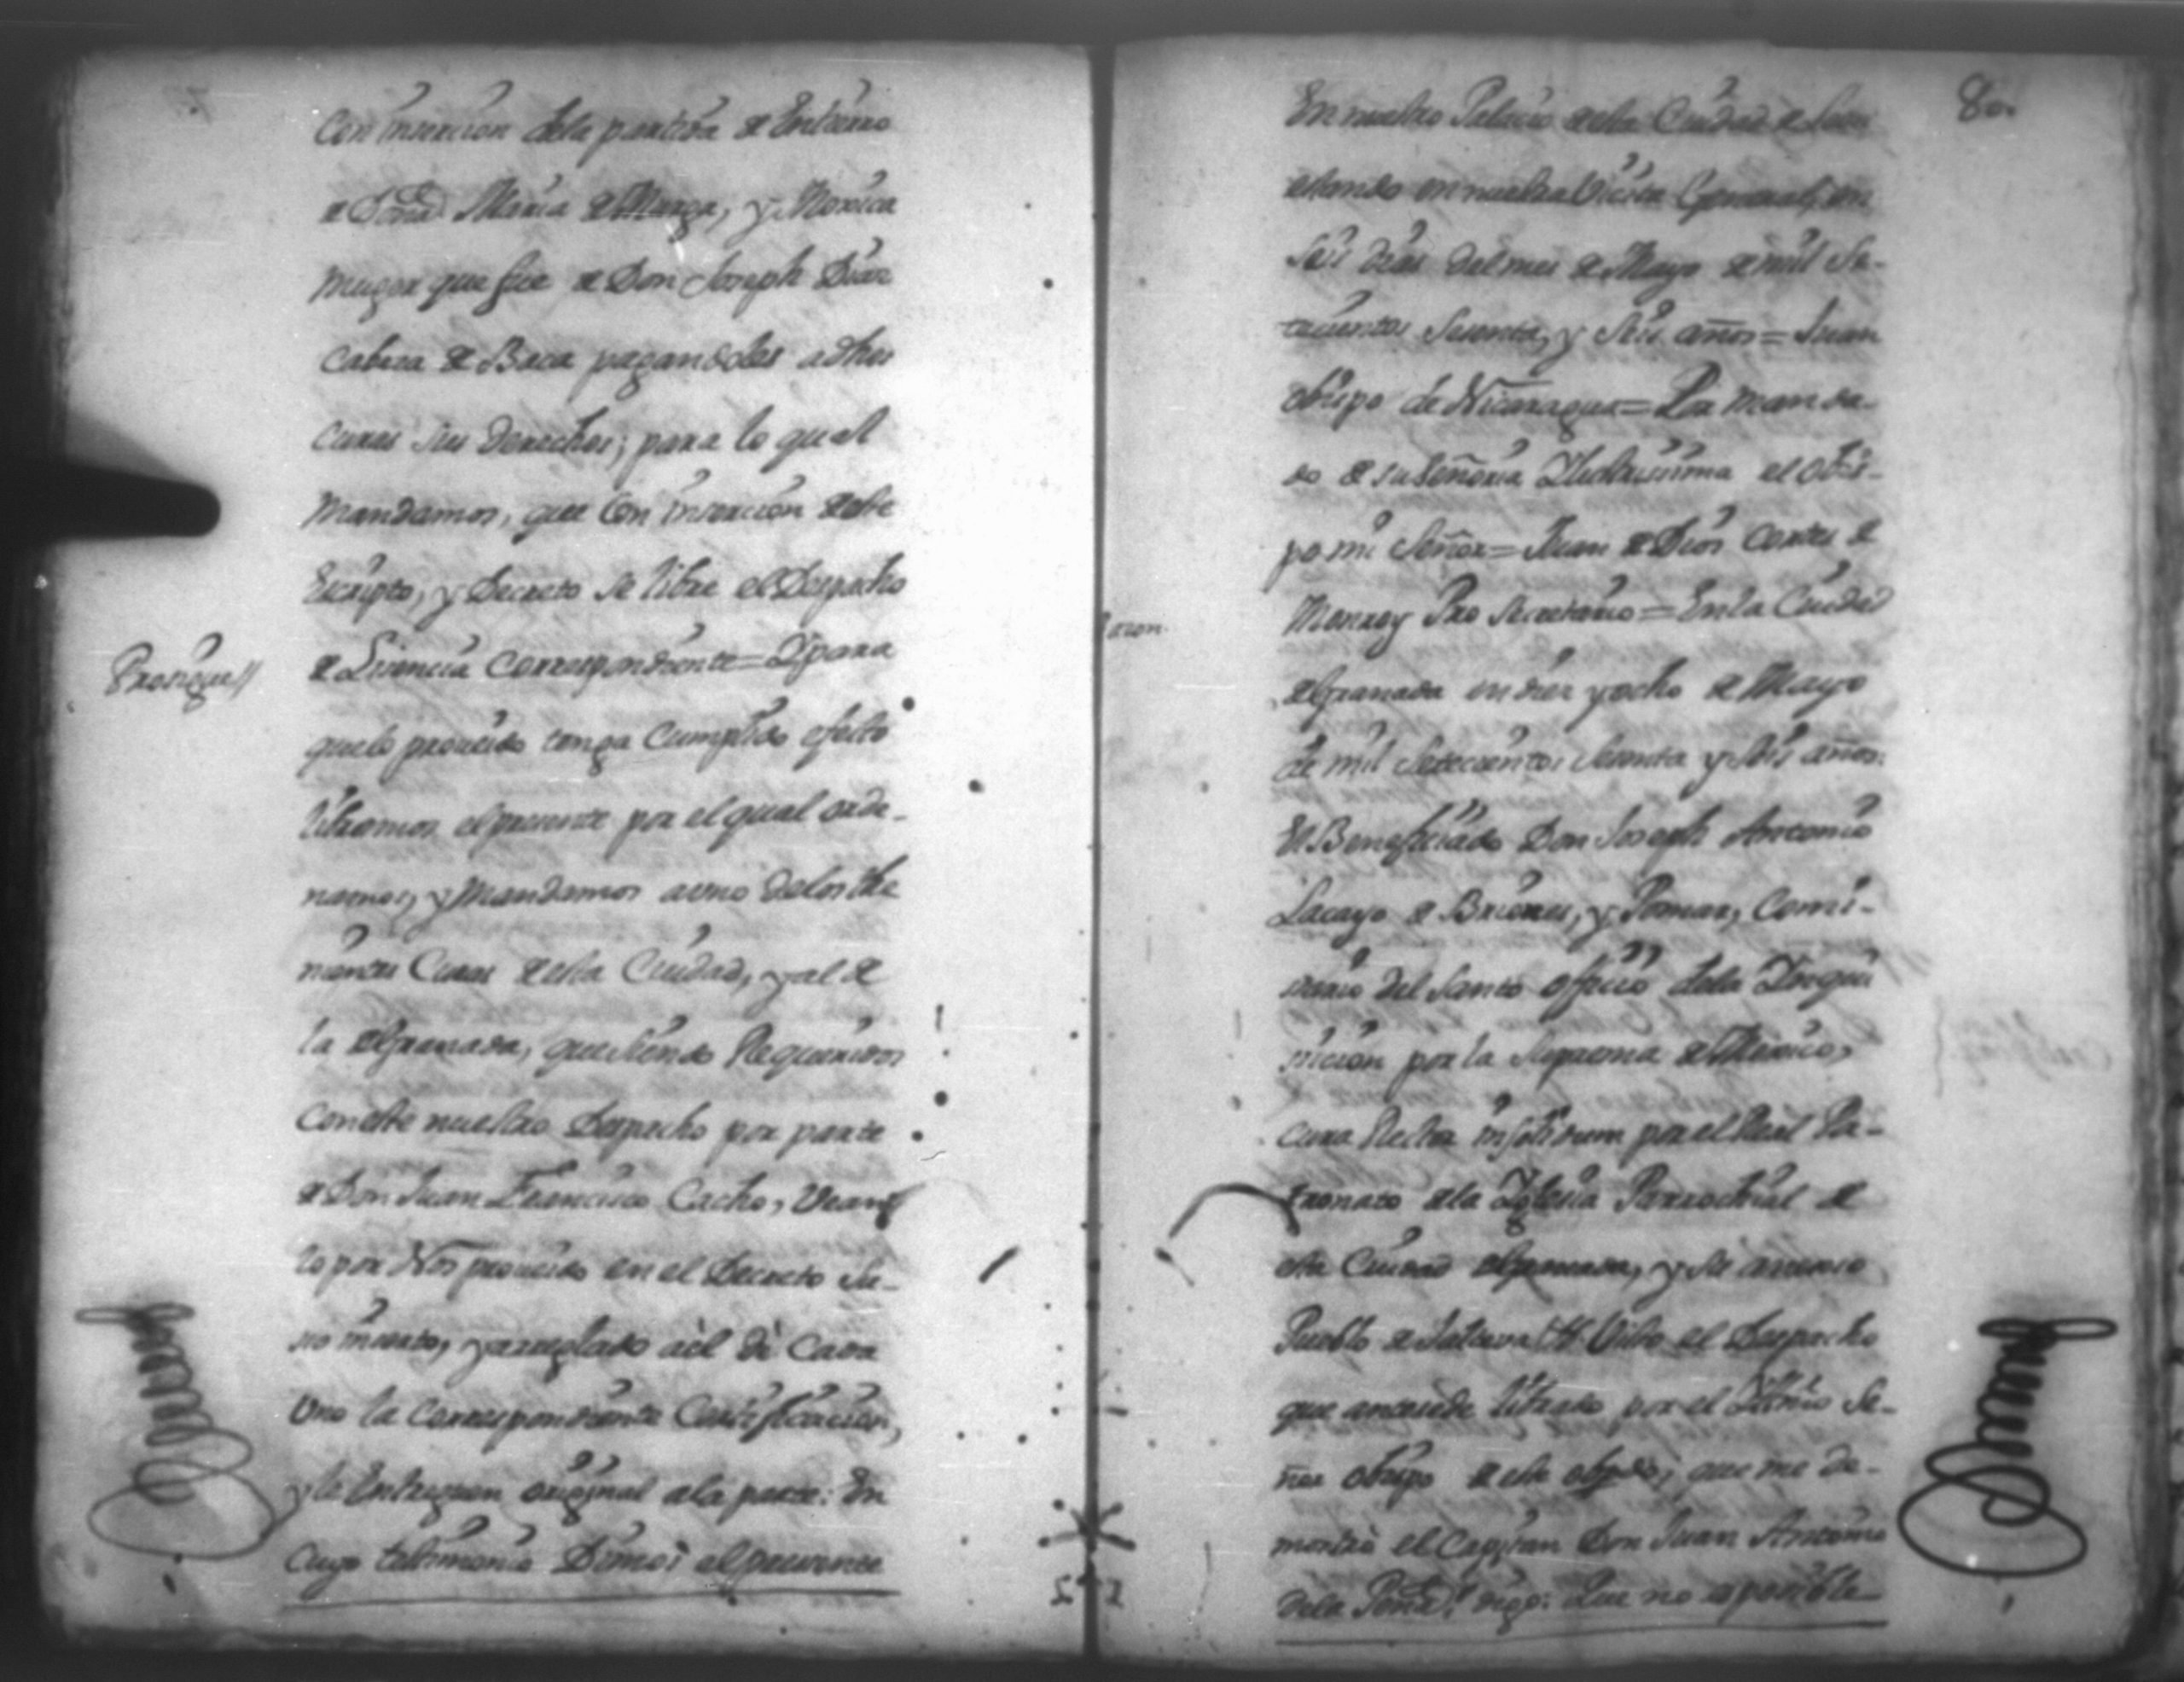 Con inserción dela partida de Entierro
de Doña Maria de Munga, y Moxica
muger que fue de Don Joseph Diaz
Cabeza de Baca pagandoles adhos
Curas sus derechos; para lo qual
mandamos, que con inserción deste
Escripto, y Decreto se libre el Despacho
Prosigue//
de Lisencia correspondiente= Ypara
quelo proueido tenga Cumplido efecto
libramos elpresente por elqual orde-
namos, y Mandamos auno delosthe
nientes Curas desta Ciudad, yal de
la deGranada, quesiendo Requeridos
coneste nuestro Despacho por parte
de Don Juan Francisco Cacho, Vean
lo por Nos proueido en el Decreto
yarreglado aèl dè Cada
Uno la correspondiente Certificación,
yla Entreguen original ala parte: En
Cuyo testimonio Dimos elpresente
80.
En nuestro Palacio desta Ciudad de Leon
estando en nuestra Vicita General, en
Seis dias delmes de Mayo de mil Se-
tecientos Sesenta, y Seis años= Juan
obispo de Nicaragua= Por manda-
do de suseñoria Illustrissima el obis-
po mi Señor= Juan de Dios Cortes de
Monroy Pro Secretario= Enla Ciudad
deGranada en diez yocho de Mayo
de mil Setecientos Sesenta y Seis años.
El Beneficiado Don Joseph Antonio
Lacayo de Briones, y Pomar, Comi-
sario del Santo officio dela Inqui
sición por la Suprema deMexico,
Cura Rector insolidum por elReal Pa-
tronato dela Iglesia Parrochial de
esta Ciudad deGranada, y su anexo
Pueblo de Jalteva &ª Visto el Despacho
que antesede librado por el Illmo Se-
ñor obispo deste obpdo; que me de-
mostrò el Capitan Don Juan Antonio
dela Peña! digo: Que no esposible